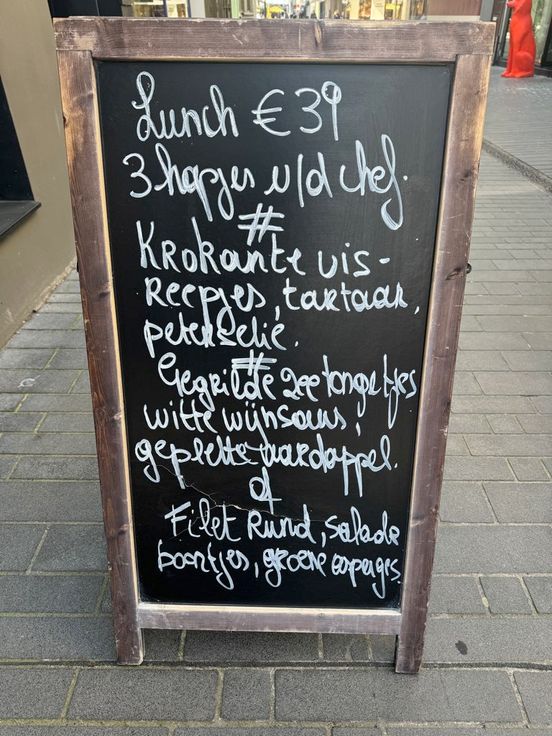 Lunch €39
3 hapjes v/d chef.
#
Krokante vis-
reepjes, tartaar,
peterselie.
#
Gegrilde zeetongetjes
witte wijnsaus,
geplette aardappel.
of
Filet Rund, salade
boontjes, groene asperges.